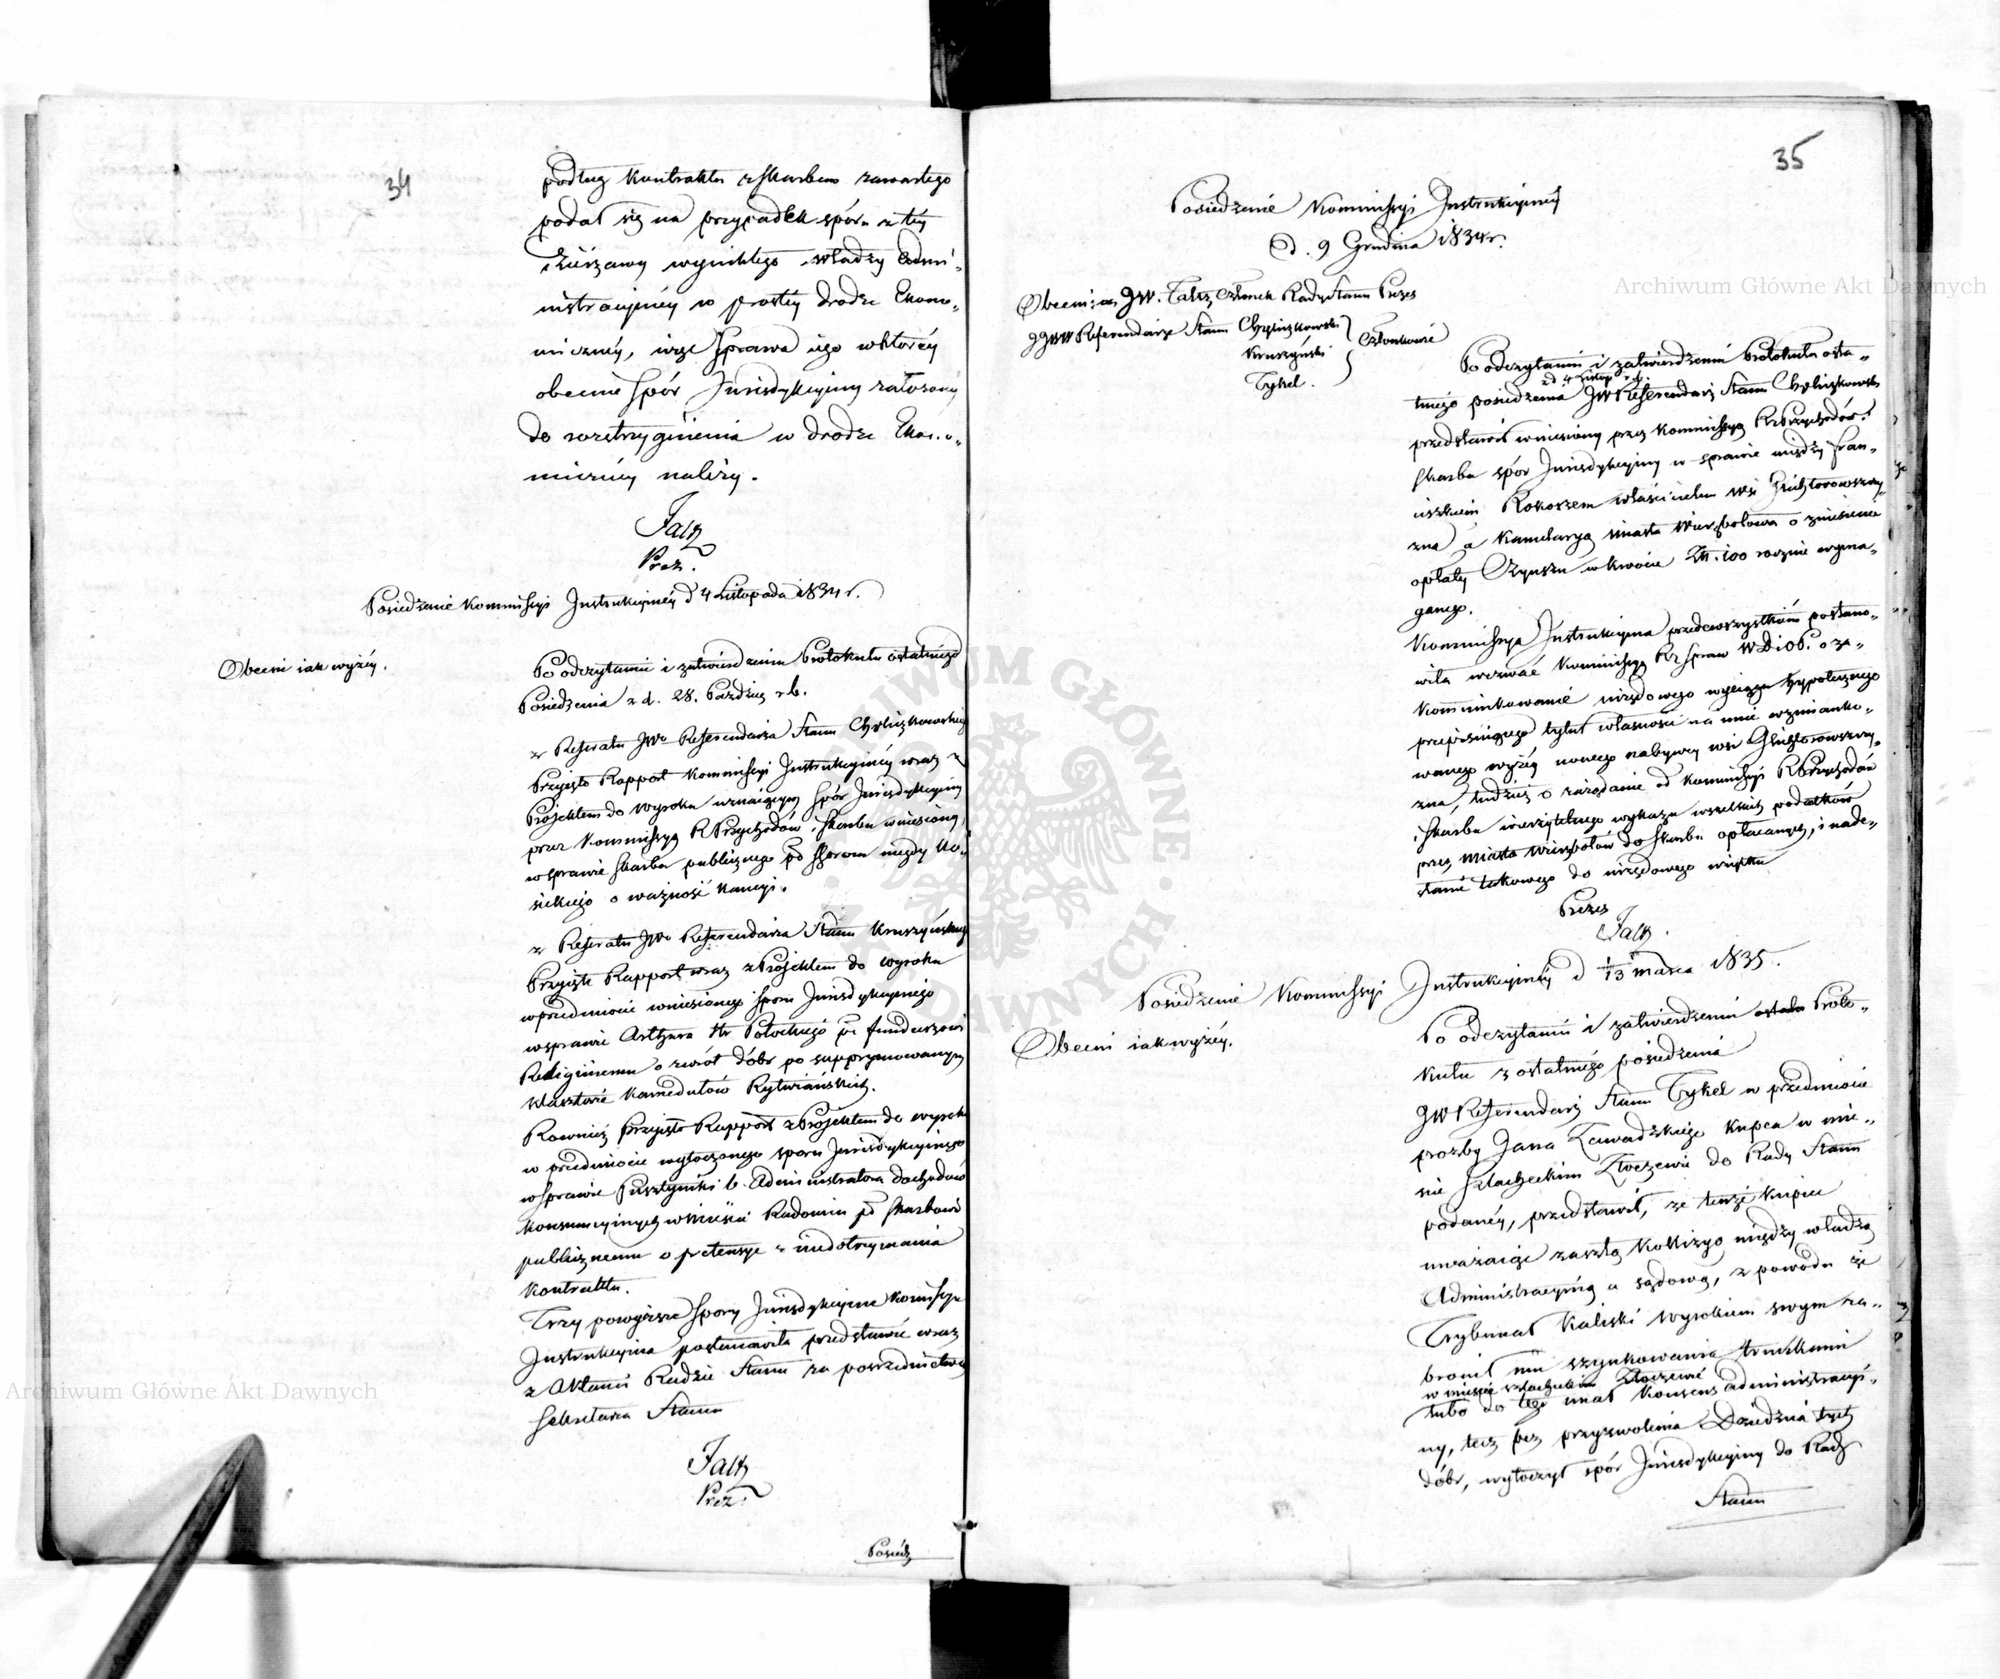 34
podług kontraktu z Skarbem zawartego
podał się na przypadek sporu z téy
dzierżawy wynikłego władzy Admi-
nistracyjnéy w prostéy drodze Ekono-
micznéy, więc sprawa jego w któréy
obecnie spór Jurisdykcyjny założony
do rozstrzygnienia w drodze Ekono-
micznéy należy.
Faltz
Prez.
Posiedzenie Kommissyi Instrukcyjnéy d 4 Listopada 1834 r.
Obecni iak wyżéy.
Po odczytaniu i zatwierdzeniu Protokułu ostatniego
Posiedzenia z d. 28. Paździer. r.b.
z Referatu JWo Referendarza Stanu Chyliczkowskiego
Przyjęto Rapport Kommissyi Instrukcyjnéy wraz z
Projektem do wyroku uznaiącym spór Jurisdykcyjny
przez Kommissyą R Przychodów i Skarbu wniesiony,
w sprawie Skarbu publicznego pd
siekiego o ważność kaucyi.
z Referatu JWo Referendarza Stanu Kruszyńskiego
Przyjęto Rapport wraz z Projektem do wyroku
w przedmiocie wniesionego sporu Jurisdykcyjnego
w sprawie Arthura Hr Potockiego pr funduszowi
Religijnemu o zwrót dóbr po supprymowanym
klasztorze Kamedułów Rytwiańskich.
Rownież przyjęto Rapport z Projektem do wyroku
w przedmiocie wytoczonego sporu Jurisdykcyjnego
w sprawie Pustynki b. Administratora dochodów
konsumcyjnych w mieście Radomiu pd Skarbowi
publicznemu o pretensye z niedotrzymania
kontraktu.
Trzy powyższe spory Jurisdykcyjne Komissya
Instrukcyjna postanowiła przedstawić wraz
z Aktami Radzie Stanu za pośrednictwem
Sekretarza Stanu
Faltz
Prez.
Posiedz
35
Posiedzenie Kommissyi Instrukcyjnéy
d. 9 Grudnia 1834 r.
Obecni: JW. Faltz Członek Rady Stanu Prezes
JJWW Referendarze Stanu Chyliczkowski
Kruszyński
Tykel.
Członkowie
Po odczytaniu i zatwierdzeniu Protokułu osta-
z d. 4 Listop. r.b.
tniego posiedzenia JW Referendarz Stanu Chyliczkowski
przedstawił wniesiony przez Kommissyą R Przychodów i
Skarbu spór Jurisdykcyjny w sprawie między Fran-
ciszkiem Rokoszem właścicielem wsi
zna a Kamelaryą miasta Wierzbołowa o zniesienie
opłaty Czynszu w kwocie Zł. 100 rocznie wyma-
ganego.
Kommissya Instrukcyjna przedewszystkiém postano-
wiła wezwać Kommissyą Rz Spraw W D i OP. o za-
kommunikowanie urzędowego wyciągu hypotecznego
przepisuiącego tytuł własności na imie wzmianko-
wanego wyżéy nowego nabywcy wsi
zna, tudzież o zażądanie od Kommissyi R Przychodów
i Skarbu wierzytelnego wykazu wszelkich podatków
przez miasto Wierzbołów do Skarbu opłacanych, i nade-
słanie takowego do urzędowego użytku
Prezes
Faltz.
Posiedzenie Kommissyi Instrukcyjnéy d 1/13 marca 1835.
Obecni iak wyżéy.
Po odczytaniu i zatwierdzeniu Proto-
kułu z ostatniego posiedzenia
JW Referendarz Stanu Tykel w przedmiocie
prozby Jana Zawadzkiego kupca w mie-
ście szlacheckim Złoczewie do Rady Stanu
podanéy, przedstawił, że tenże kupiec
uważaiąc zaszłą kollizyą między władzą
Administracyjną a sądową, z powodu że
Trybunał Kaliski wyrokiem swym za-
bronił mu szynkowania trunkami
w mieście szlacheckim Złoczewie
lubo do tego miał konsens administracyi-
ny, lecz bez przyzwolenia Dziedzica tych
dóbr, wytoczył spór Jurisdykcyjny do Rady
Stanu
Archiwum Główne Akt Dawnych
Archiwum Główne Akt Dawnych
ARCHIWUM GŁÓWNE AKT DAWNYCH